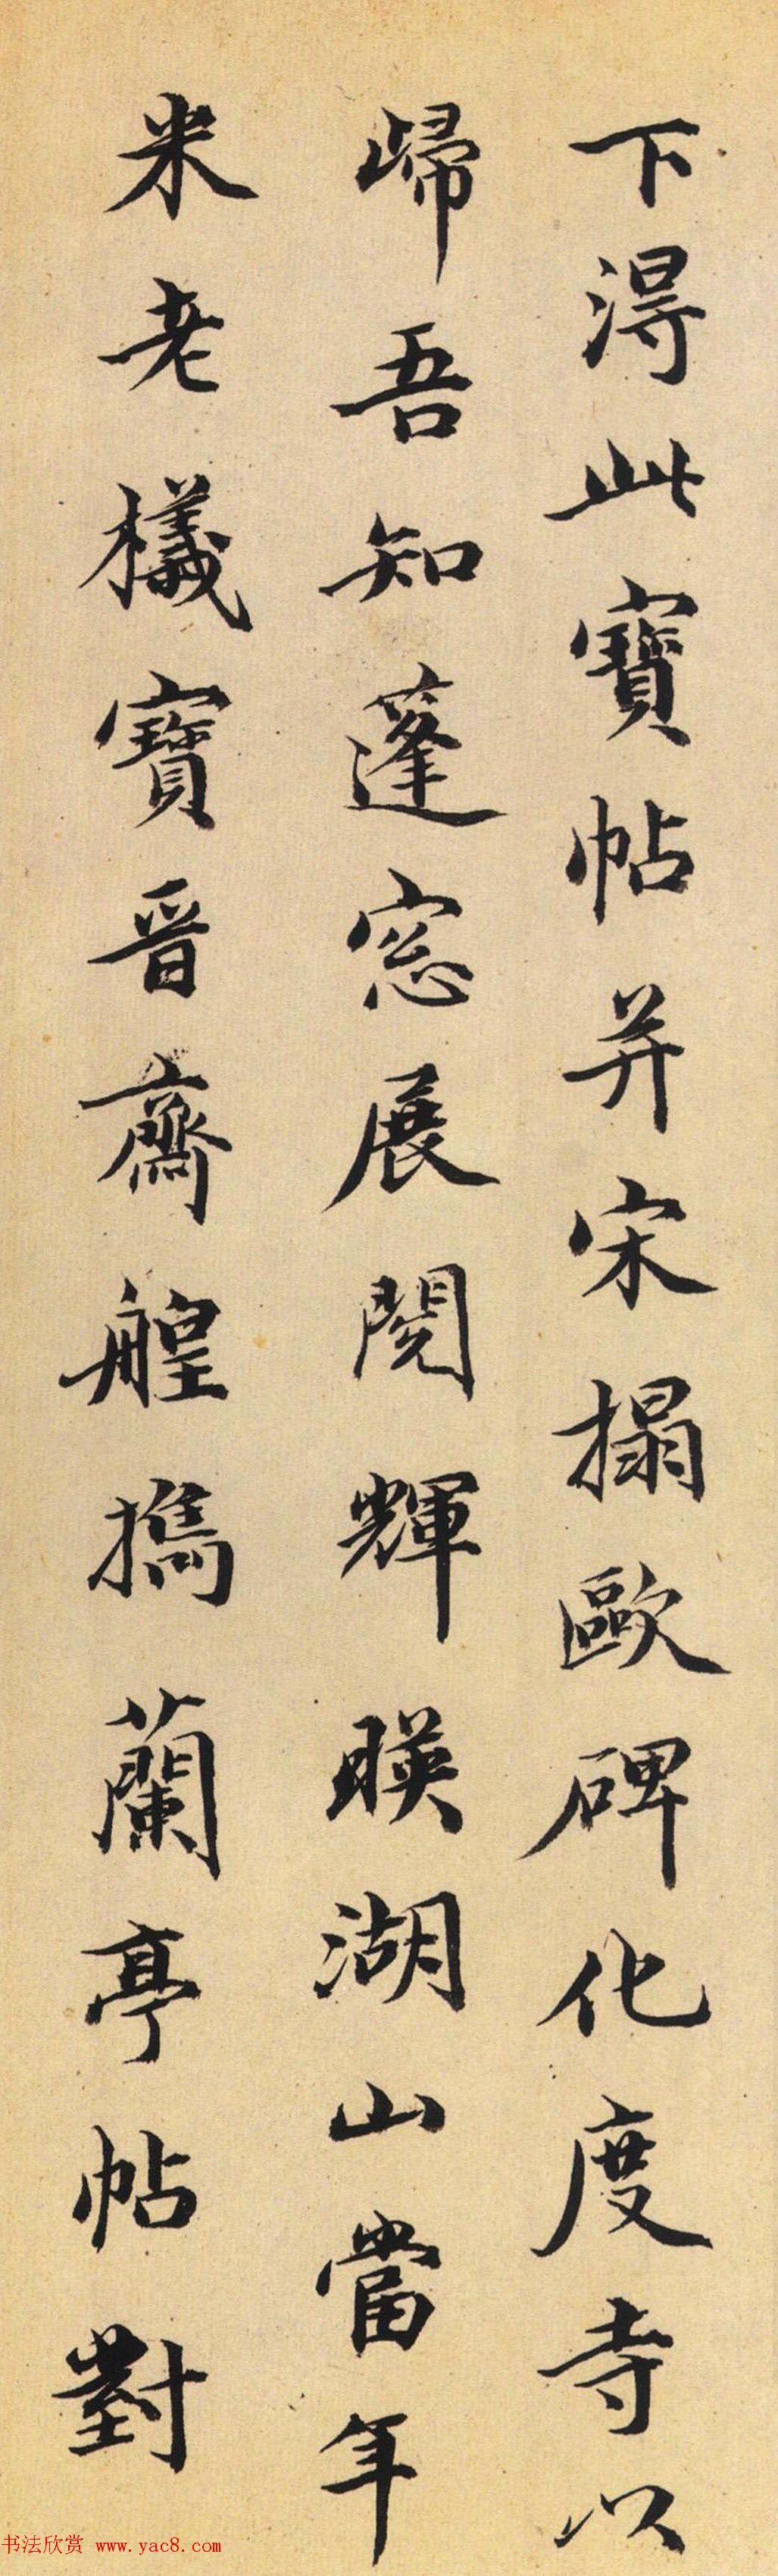 下得此寶帖并宋搨歐碑化度寺以
歸吾知蓬窓展閱輝暎湖山當年
米老檥寶晉齋艎攜蘭亭帖對
书法欣赏 www.yac8.com